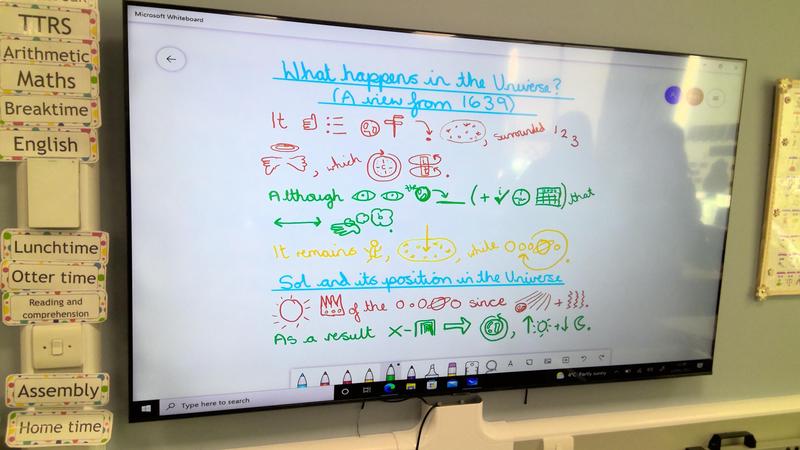 TTRS
Arithmetic
Maths
Breaktime
English
Lunchtime
Otter time
Reading and
comprehension
Assembly
Home time
Microsoft Whiteboard
What happens in the Universe?
(A view from 1639)
It , surrounded 1 2 3
, which .
Although the (+ ) that
It remains , while .
Sol and its position in the Universe
of the since + .
As a result X- , + .
Type here to search
4°C Partly sunny